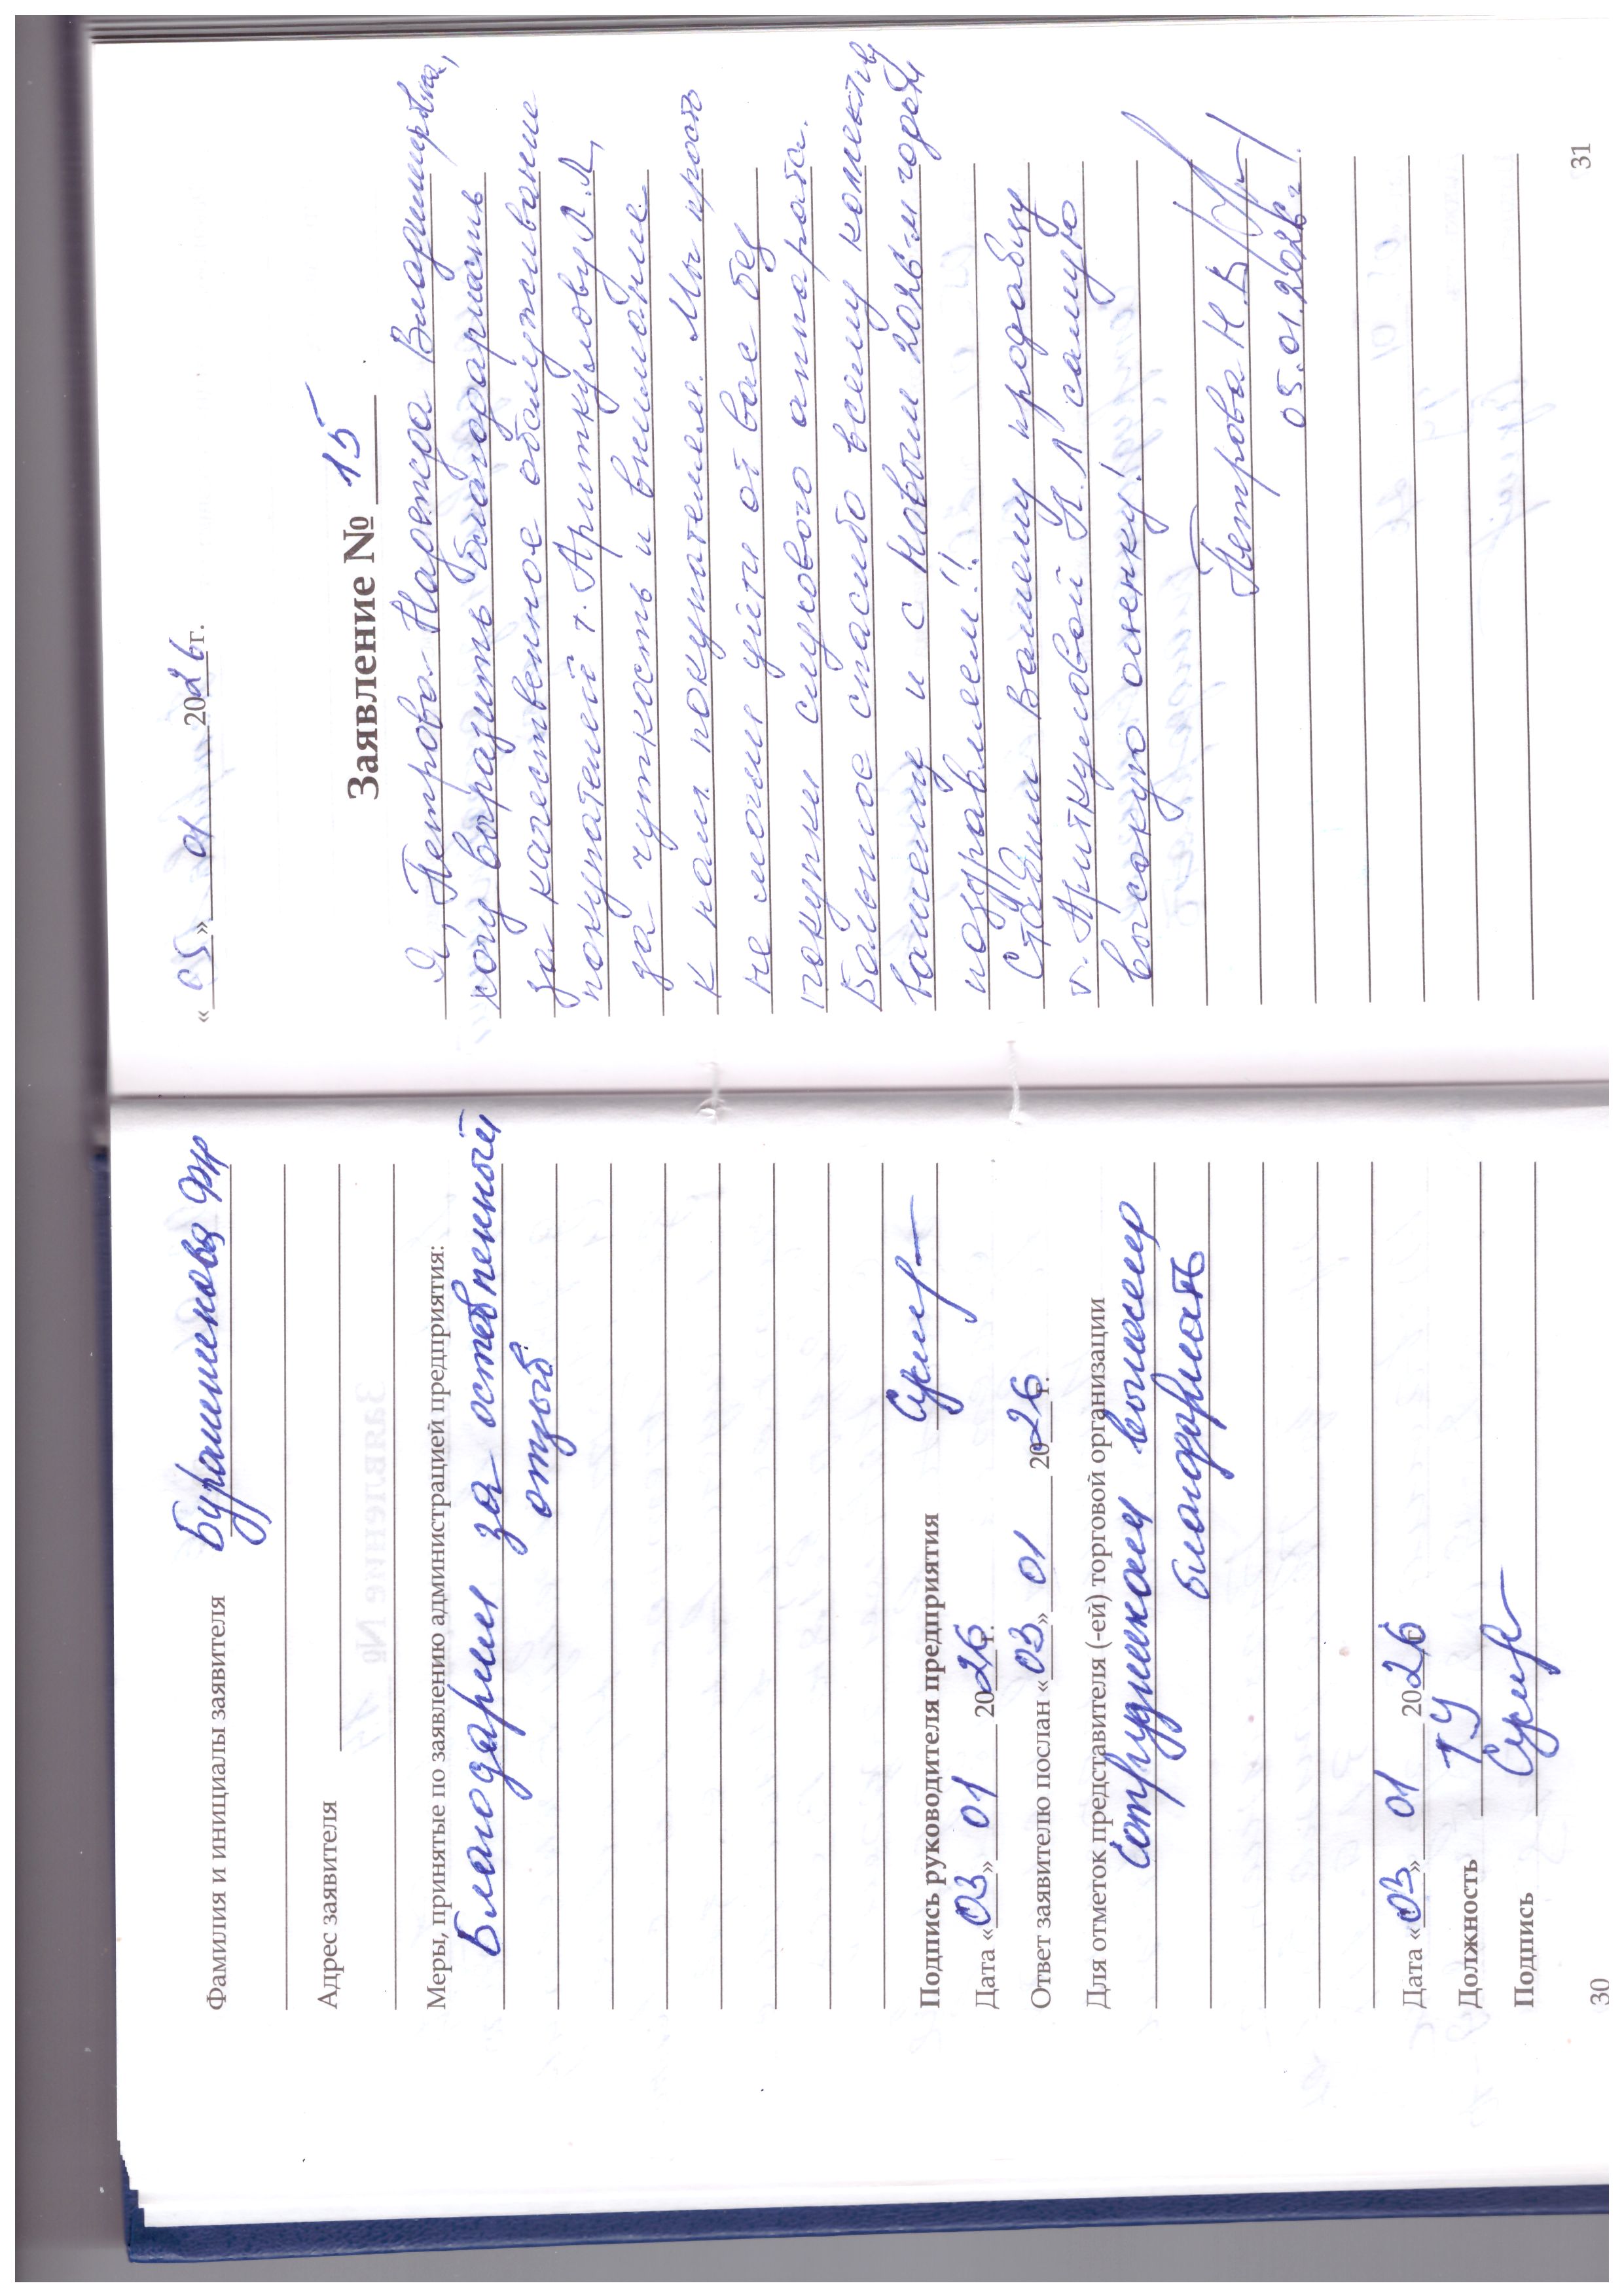 Фамилия и инициалы заявителя Бурашникова
Адрес заявителя
Меры, принятые по заявлению администрацией предприятия:
Благодарим за оставленный
отзыв.
Подпись руководителя предприятия
Дата «03» 01 2026г.
Ответ заявителю послан «03» 01 2026г.
Для отметок представителя (-ей) торговой организации
Сотрудникам вынесем
благодарность
Дата «03» 01 2026
Должность ТУ
Подпись
30
«05» 01 2026г.
Заявление № 15
Я, Петрова Надежда Владимировна,
хочу выразить благодарность
за качественное обслуживание
покупателей т. Ариткулову Л.Л,
за чуткость и внимание
к нам покупателям. Мы прост
не могли уйти от вас без
покупки слухового аппарата.
Большое спасибо всему коллективу
вашему и с Новым 2026-м годом
поздравляем!!
Ставим Вашему продавцу
т. Ариткуловой Л.Л самую
высокую оценку!
Петрова Н.В
05.01.2026г.
31